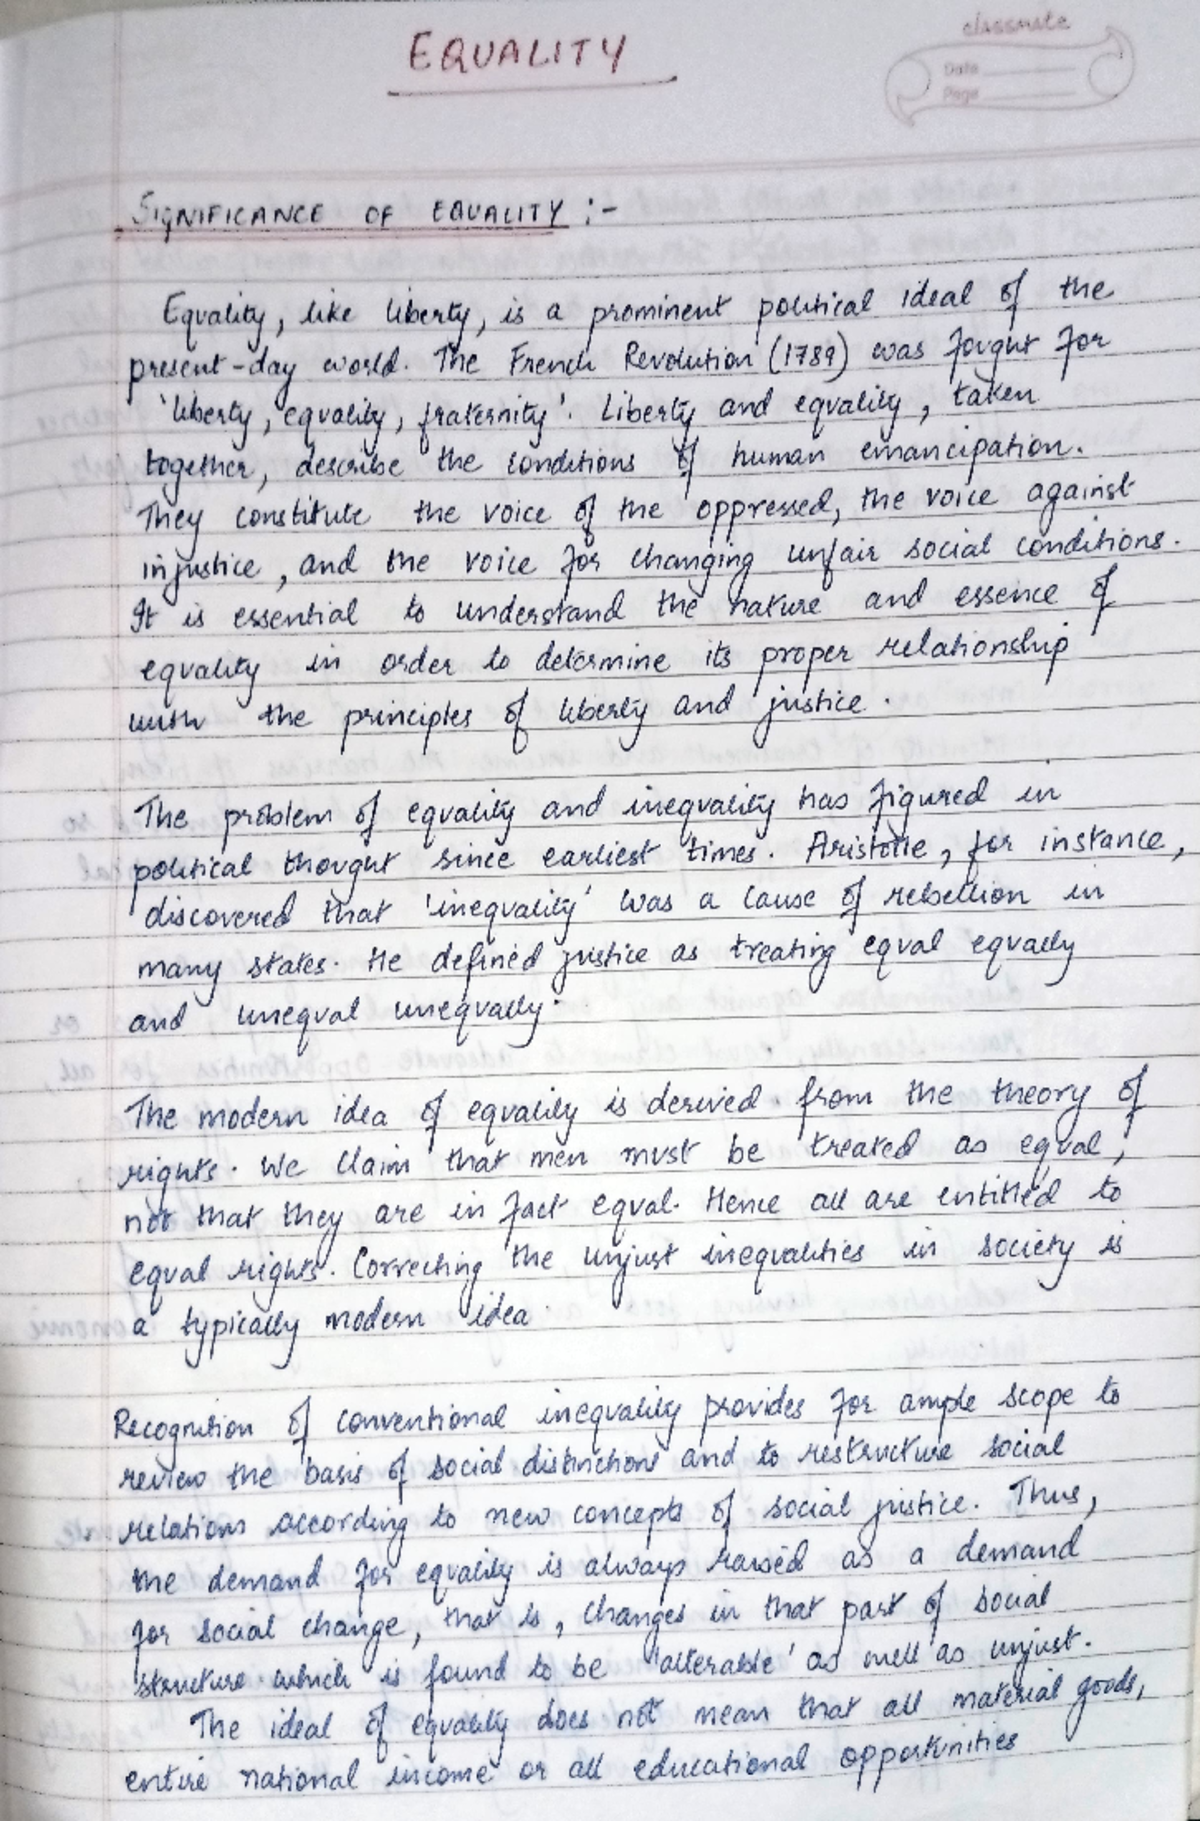 classmate
Date
Page
EQUALITY
SIGNIFICANCE OF EQUALITY :-
Equality, like liberty, is a prominent political ideal of the
present-day world. The French Revolution (1789) was fought for
'liberty, equality, fraternity'. Liberty and equality, taken
together, describe the conditions of human emancipation.
They constitute the voice of the oppressed, the voice against
injustice, and the voice for changing unfair social conditions.
It is essential to understand the nature and essence of
equality in order to determine its proper relationship
with the principles of liberty and justice.
The problem of equality and inequality has figured in
political thought since earliest times. Aristotle, for instance,
discovered that 'inequality' was a cause of rebellion in
many states. He defined justice as treating equal equally
and unequal unequally.
The modern idea of equality is derived from the theory of
rights. We claim that men must be treated as equal,
not that they are in fact equal. Hence all are entitled to
equal rights. Correcting the unjust inequalities in society is
a typically modern idea
Recognition of conventional inequality provides for ample scope to
review the basis of social distinctions and to restructure social
relations according to new concepts of social justice. Thus,
the demand for equality is always raised as a demand
for social change, that is, changes in that part of social
structure which is found to be 'alterable' as well as unjust.
The ideal of equality does not mean that all material goods,
entire national income or all educational opportunities